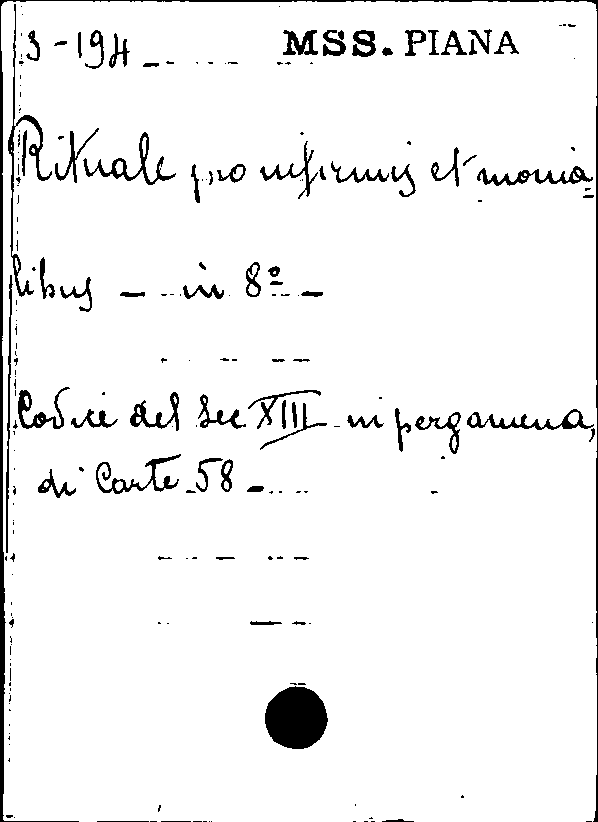 3-194 MSS. PIANA
Rituale pro infirmis et monia=
libus — in 8º —
Codice del sec XIII in pergamena,
di Carte 58 -